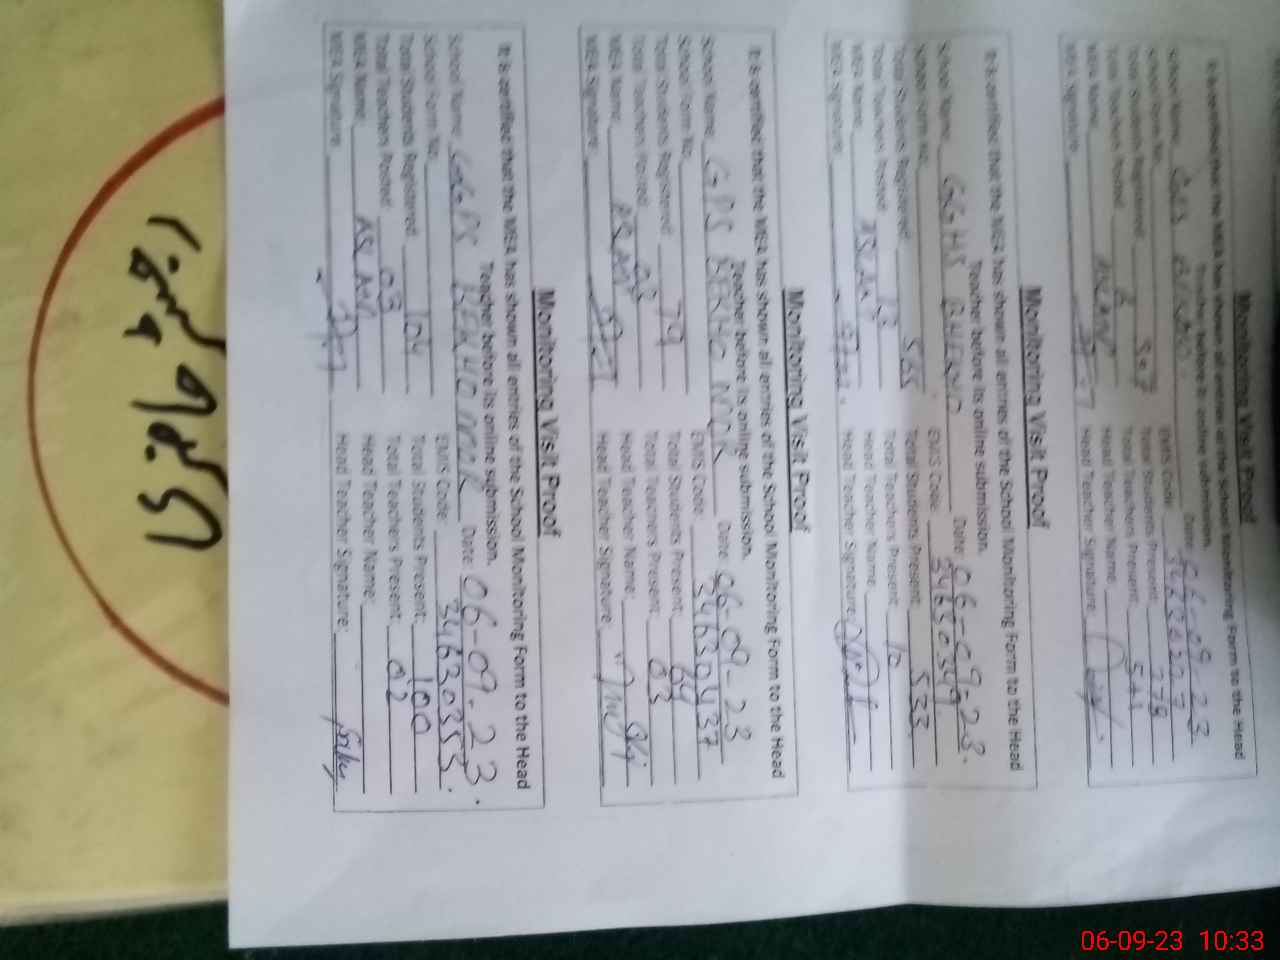 Monitoring Visit Proof
It is certified that the MEA has shown all entries of the School Monitoring Form to the Head
Teacher before its online submission.
School Name: Date: 06-09-23
School Form No: EMIS Code:
Total Students Registered: Total Students Present: 778
Total Teachers Posted: Total Teachers Present:
MEA Name: ASLAM Head Teacher Name:
MEA Signature: Head Teacher Signature:
Monitoring Visit Proof
It is certified that the MEA has shown all entries of the School Monitoring Form to the Head
Teacher before its online submission.
School Name: GGHS Date: 06-09-23.
School Form No: EMIS Code: 34630349
Total Students Registered: 565 Total Students Present: 533
Total Teachers Posted: 13 Total Teachers Present: 12
MEA Name: ASLAM Head Teacher Name:
MEA Signature: Head Teacher Signature:
Monitoring Visit Proof
It is certified that the MEA has shown all entries of the School Monitoring Form to the Head
Teacher before its online submission.
School Name: GPS BEKHO NNR Date: 06-09-23
School Form No: EMIS Code: 34630437
Total Students Registered: 79 Total Students Present: 64
Total Teachers Posted: Total Teachers Present: 03
MEA Name: ASLAM Head Teacher Name:
MEA Signature: Head Teacher Signature:
Monitoring Visit Proof
It is certified that the MEA has shown all entries of the School Monitoring Form to the Head
Teacher before its online submission.
School Name: GGPS BEKHO NNR Date: 06-09-23.
School Form No: EMIS Code: 34630353.
Total Students Registered: 104 Total Students Present: 100
Total Teachers Posted: 03 Total Teachers Present: 02
MEA Name: ASLAM Head Teacher Name:
MEA Signature: Head Teacher Signature:
06-09-23 10:33